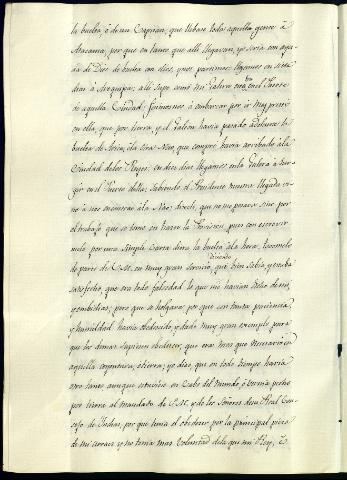 la buelta, ò de un Capitan, que llebase toda aquella gente à
Atacama, por que en tanto que alli llegavan, yo seria con ayu-
da de Dios de buelta con ellos, y nos partimos. Llegamos en siete
dias à Arequipa; alli supe como mi Galera estaba en el Puerto
de aquella Ciudad; fuimonos à embarcar por ir mas presto
en ella, que por tierra, y el Galeon havia pasado adelante la
buelta de Arica, è la otra Nao, que compré havia arribado à la
Ciudad de los Reyes: en diez dias llegamos en la Galera à sur-
gir en el Puerto della: sabiendo el Presidente nuestra llegada vi-
no à nos encontrar à la Nao; dixele, que no me pesara sino por
el trabajo que se tomò en hacer la Provision, pues con escrevir
melo por una simple Carta diera la buelta à la hora; tovomelo
de parte de S. M. en muy gran servicio, diciendo que bien sabia, y estaba
satisfecho, que era todo falsedad lo que me havian dicho de mi,
y embidias; pero que se holgaba, por que con tanta paciencia,
y humildad havia obedecido, y dado muy gran exemplo para
que los demas supiesen obedecer, que era mas que necesario en
aquella coyuntura, è tierra; yo dixe, que en todo tiempo haria
otro tanto aunque estuviese en Cabo del Mundo, è vernia pecho
por tierra al mandado de S. M. y de los Señores de su Real Con-
sejo de Indias, por que tenia el obedecer por la principal pieza
de mi arnes, y no tenia mas voluntad de la que mi Rey, è